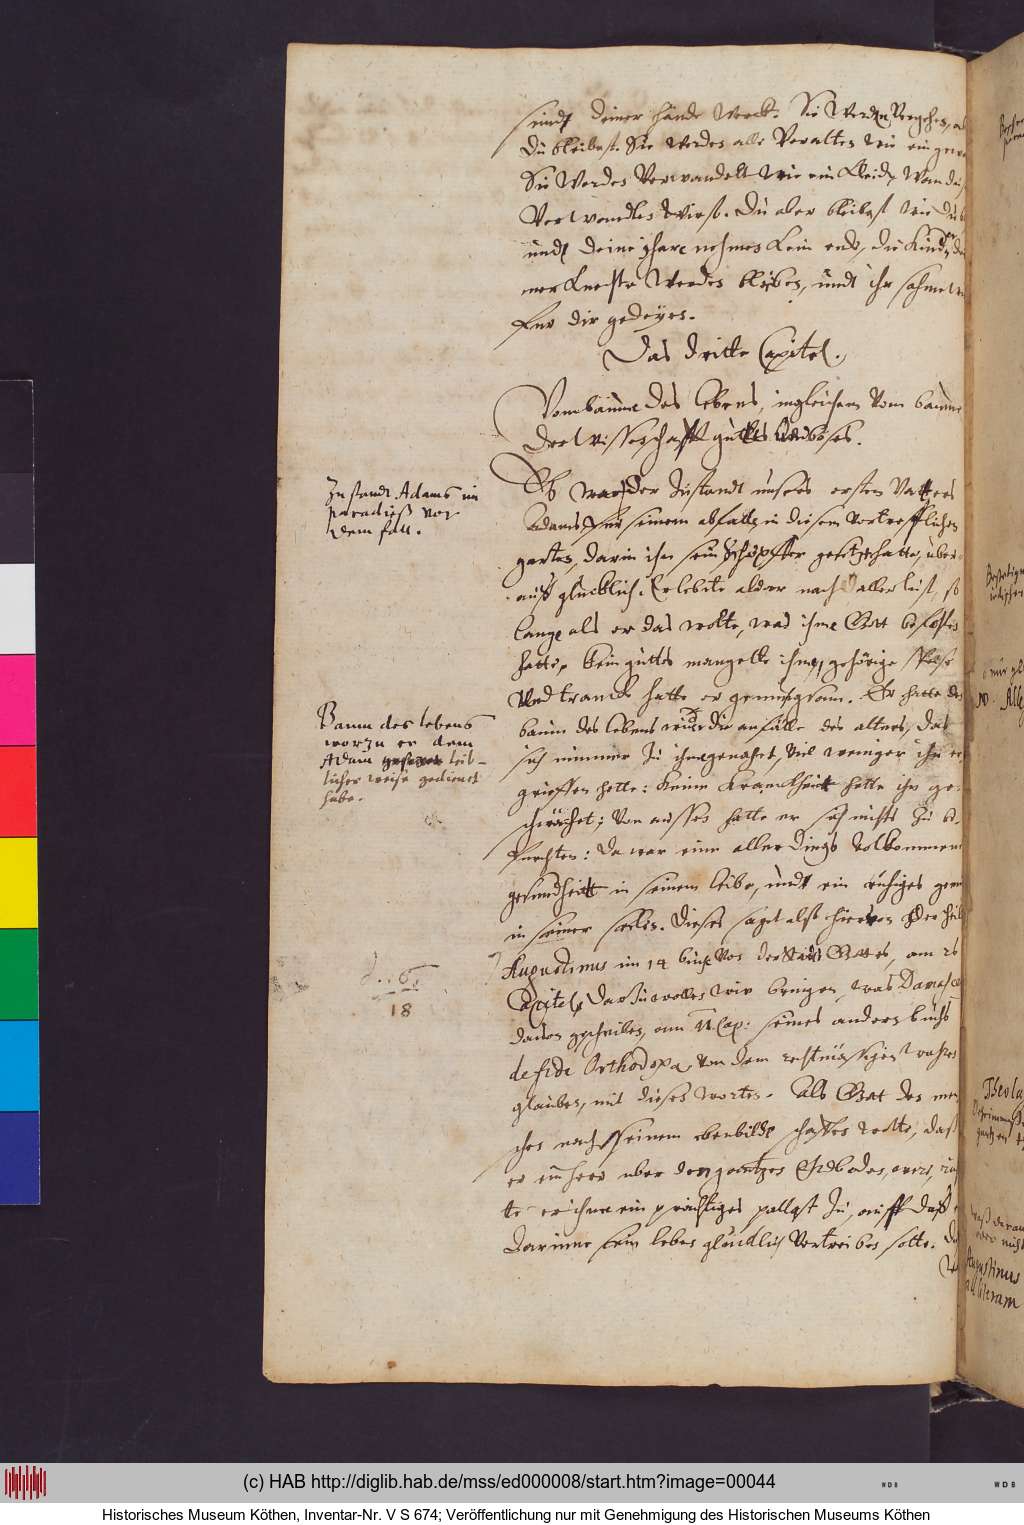 sindt deiner hände werck. Sie werden vergehen, a
Du bleibest. Sie werden alle veralten wie ein gewa
Sie werden verwandelt wie ein Kleidt, wan du s
verwandlen wirst. Du aber bleibest wie du b
undt deine jhare nehmen kein ende, die Kinder dei
ner knechte werden bleiben, undt ihr sahme w
für dir gedeyen.
Das dritte Capitel.
Vom baume des Lebens, ingleichem vom baume
der wissenschafft guttes und böses.
Zustandt Adams im
paradieß vor
dem fall.
Es war der Zustandt unsers ersten Vatters
Adams, für seinem abfalle, in diesem vortrefflichen
garten, darin ihn sein Schöpffer gesetzt hatte, über
auß glücklich. Er lebete alda nach aller lust, so
lange als er das wolte, was ihme Gott befohlen
hatte, kein guttes mangelte ihme, gehörige speise
und tranck hatte er genungsam. Er hatte den
baum des Lebens wider die anfälle des alters, das
sich nimmer zu ihme genahet, viel weniger ihn er
grieffen hette: Keine Kranckheit hette ihn ge-
schwächet; von aussen hatte er sich nichts zu be-
fürchten: Da war eine aller dings volkommene
gesundtheitt in seinem leibe, undt ein ruhiges gem
in seiner seelen. Dieses saget also hiervon der heil
Augustinus im 14 buch von der Stadt Gottes, am 26
Capitel. Darzu wollen wir bringen, was Damasce
davon geschrieben, am 11 Cap: seines andern buchs
de fide Orthodoxa, von dem rechtmässigen wahren
glauben, mit diesen worten. Als Gott den men
schen nach seinem ebenbilde schaffen wolte, daß
er ein herr uber den gantzen Erdboden, were, rich
te er ihme ein prächtiges pallast zu, auff daß e
darinne sein leben glücklich vertreiben solte.
Baum des lebens
worzu er dem
Adam leib-
licher weise gedienet
habe.
18
Augustinus
ad literam
(c) HAB http://diglib.hab.de/mss/ed000008/start.htm?image=00044
WDB
WDB
Historisches Museum Köthen, Inventar-Nr. V S 674; Veröffentlichung nur mit Genehmigung des Historischen Museums Köthen